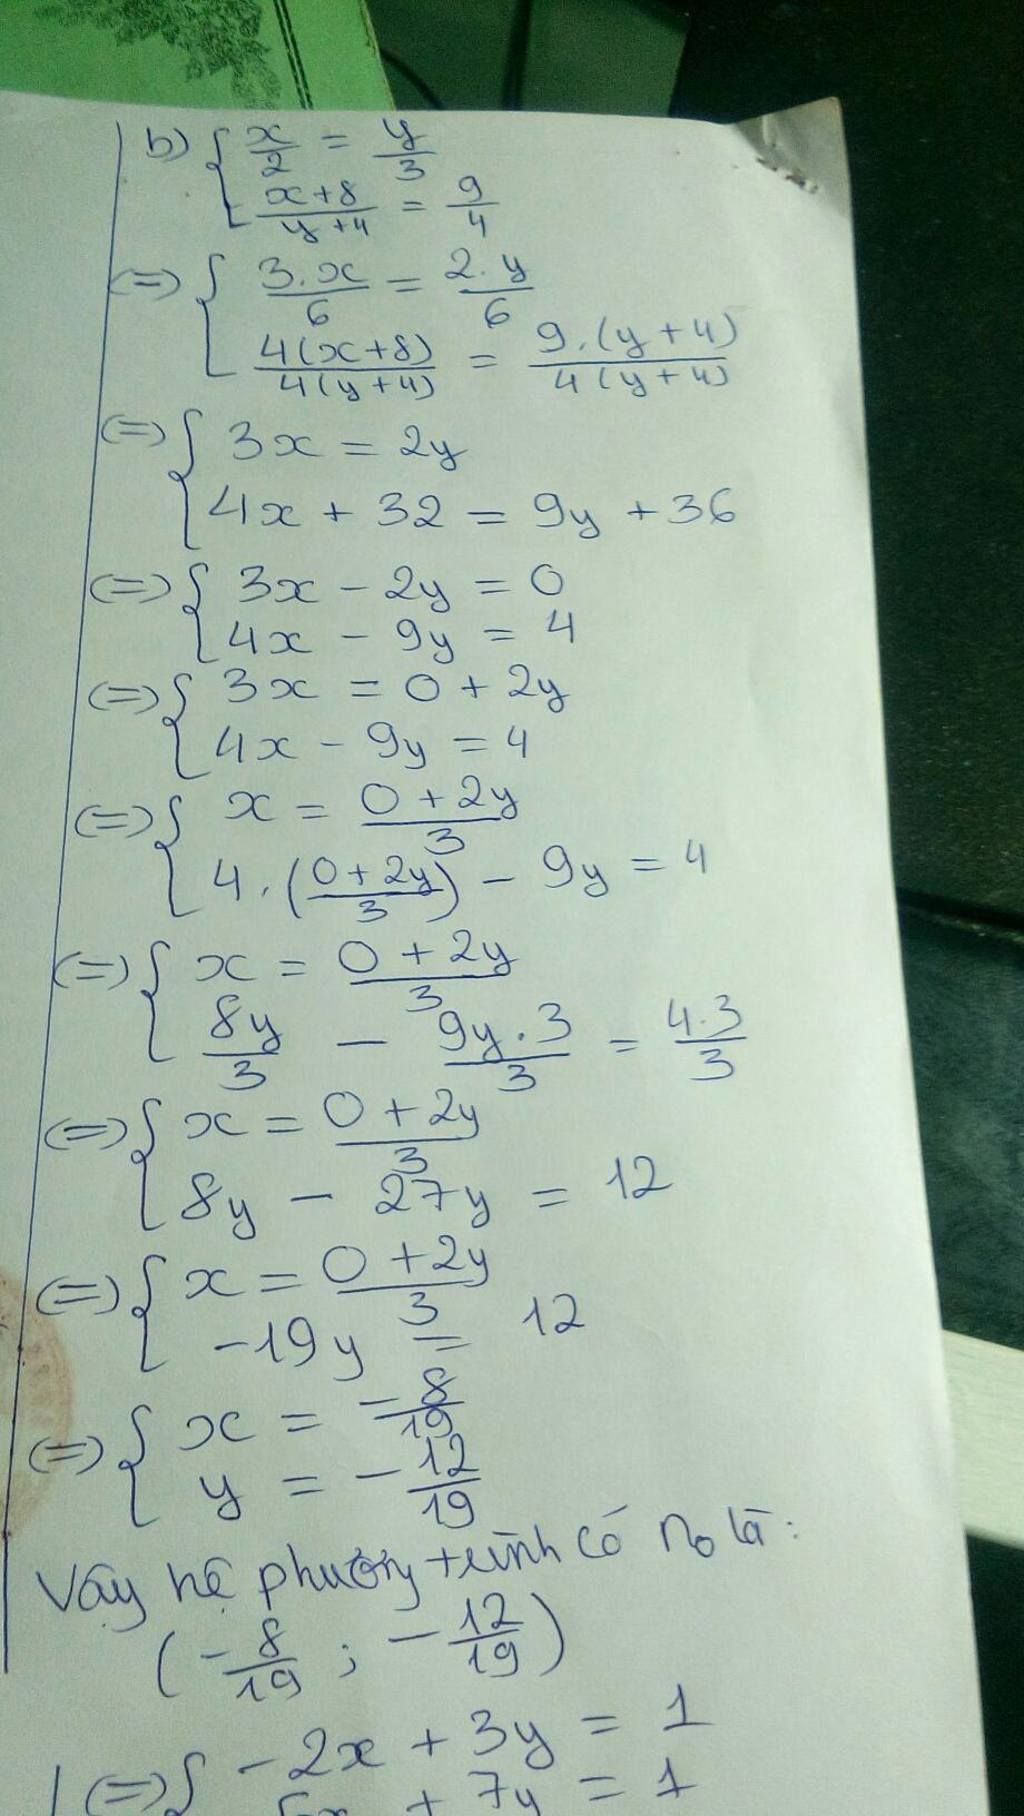 b) { x/2 = y/3
(x+8)/(y+4) = 9/4
(=) { 3.x/6 = 2.y/6
4(x+8)/4(y+4) = 9.(y+4)/4(y+4)
(=) { 3x = 2y
4x + 32 = 9y + 36
(=) { 3x - 2y = 0
4x - 9y = 4
(=) { 3x = 0 + 2y
4x - 9y = 4
(=) { x = (0 + 2y)/3
4.((0 + 2y)/3) - 9y = 4
(=) { x = (0 + 2y)/3
8y/3 - 9y.3/3 = 4.3/3
(=) { x = (0 + 2y)/3
8y - 27y = 12
(=) { x = (0 + 2y)/3
-19y = 12
(=) { x = -8/19
y = -12/19
Vậy hệ phương trình có no là:
(-8/19 ; -12/19)
(=) { -2x + 3y = 1
+ 7y = 1